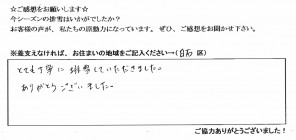 ☆ご感想をお願いします☆
今シーズンの排雪はいかがでしたか?
お客様の声が、私たちの原動力になっています。ぜひ、ご感想をお聞かせ下さい。
※差支えなければ、お住まいの地域をご記入ください→(白石 区)
とても丁寧に排雪していただきました。
ありがとうございました。
ご協力ありがとうございました!